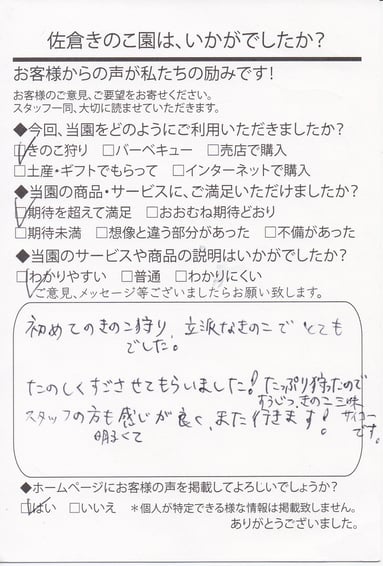 佐倉きのこ園は、いかがでしたか?
お客様からの声が私たちの励みです!
お客様のご意見、ご要望をお寄せください。
スタッフ一同、大切に読ませていただきます。
◆今回、当園をどのようにご利用いただきましたか?
□きのこ狩り □バーベキュー □売店で購入
□土産・ギフトでもらって □インターネットで購入
◆当園の商品・サービスに、ご満足いただけましたか?
□期待を超えて満足 □おおむね期待どおり
□期待未満 □想像と違う部分があった □不備があった
◆当園のサービスや商品の説明はいかがでしたか?
□わかりやすい □普通 □わかりにくい
ご意見、メッセージ等ございましたらお願い致します。
初めてのきのこ狩り、立派なきのこで とても
でした。
たのしくすごさせてもらいました! たっぷり狩ったので
きのこ三昧
スタッフの方も感じが良く、また行きます! サイコー
明るくて
です。
◆ホームページにお客様の声を掲載してよろしいでしょうか?
□はい □いいえ *個人が特定できる様な情報は掲載致しません。
ありがとうございました。